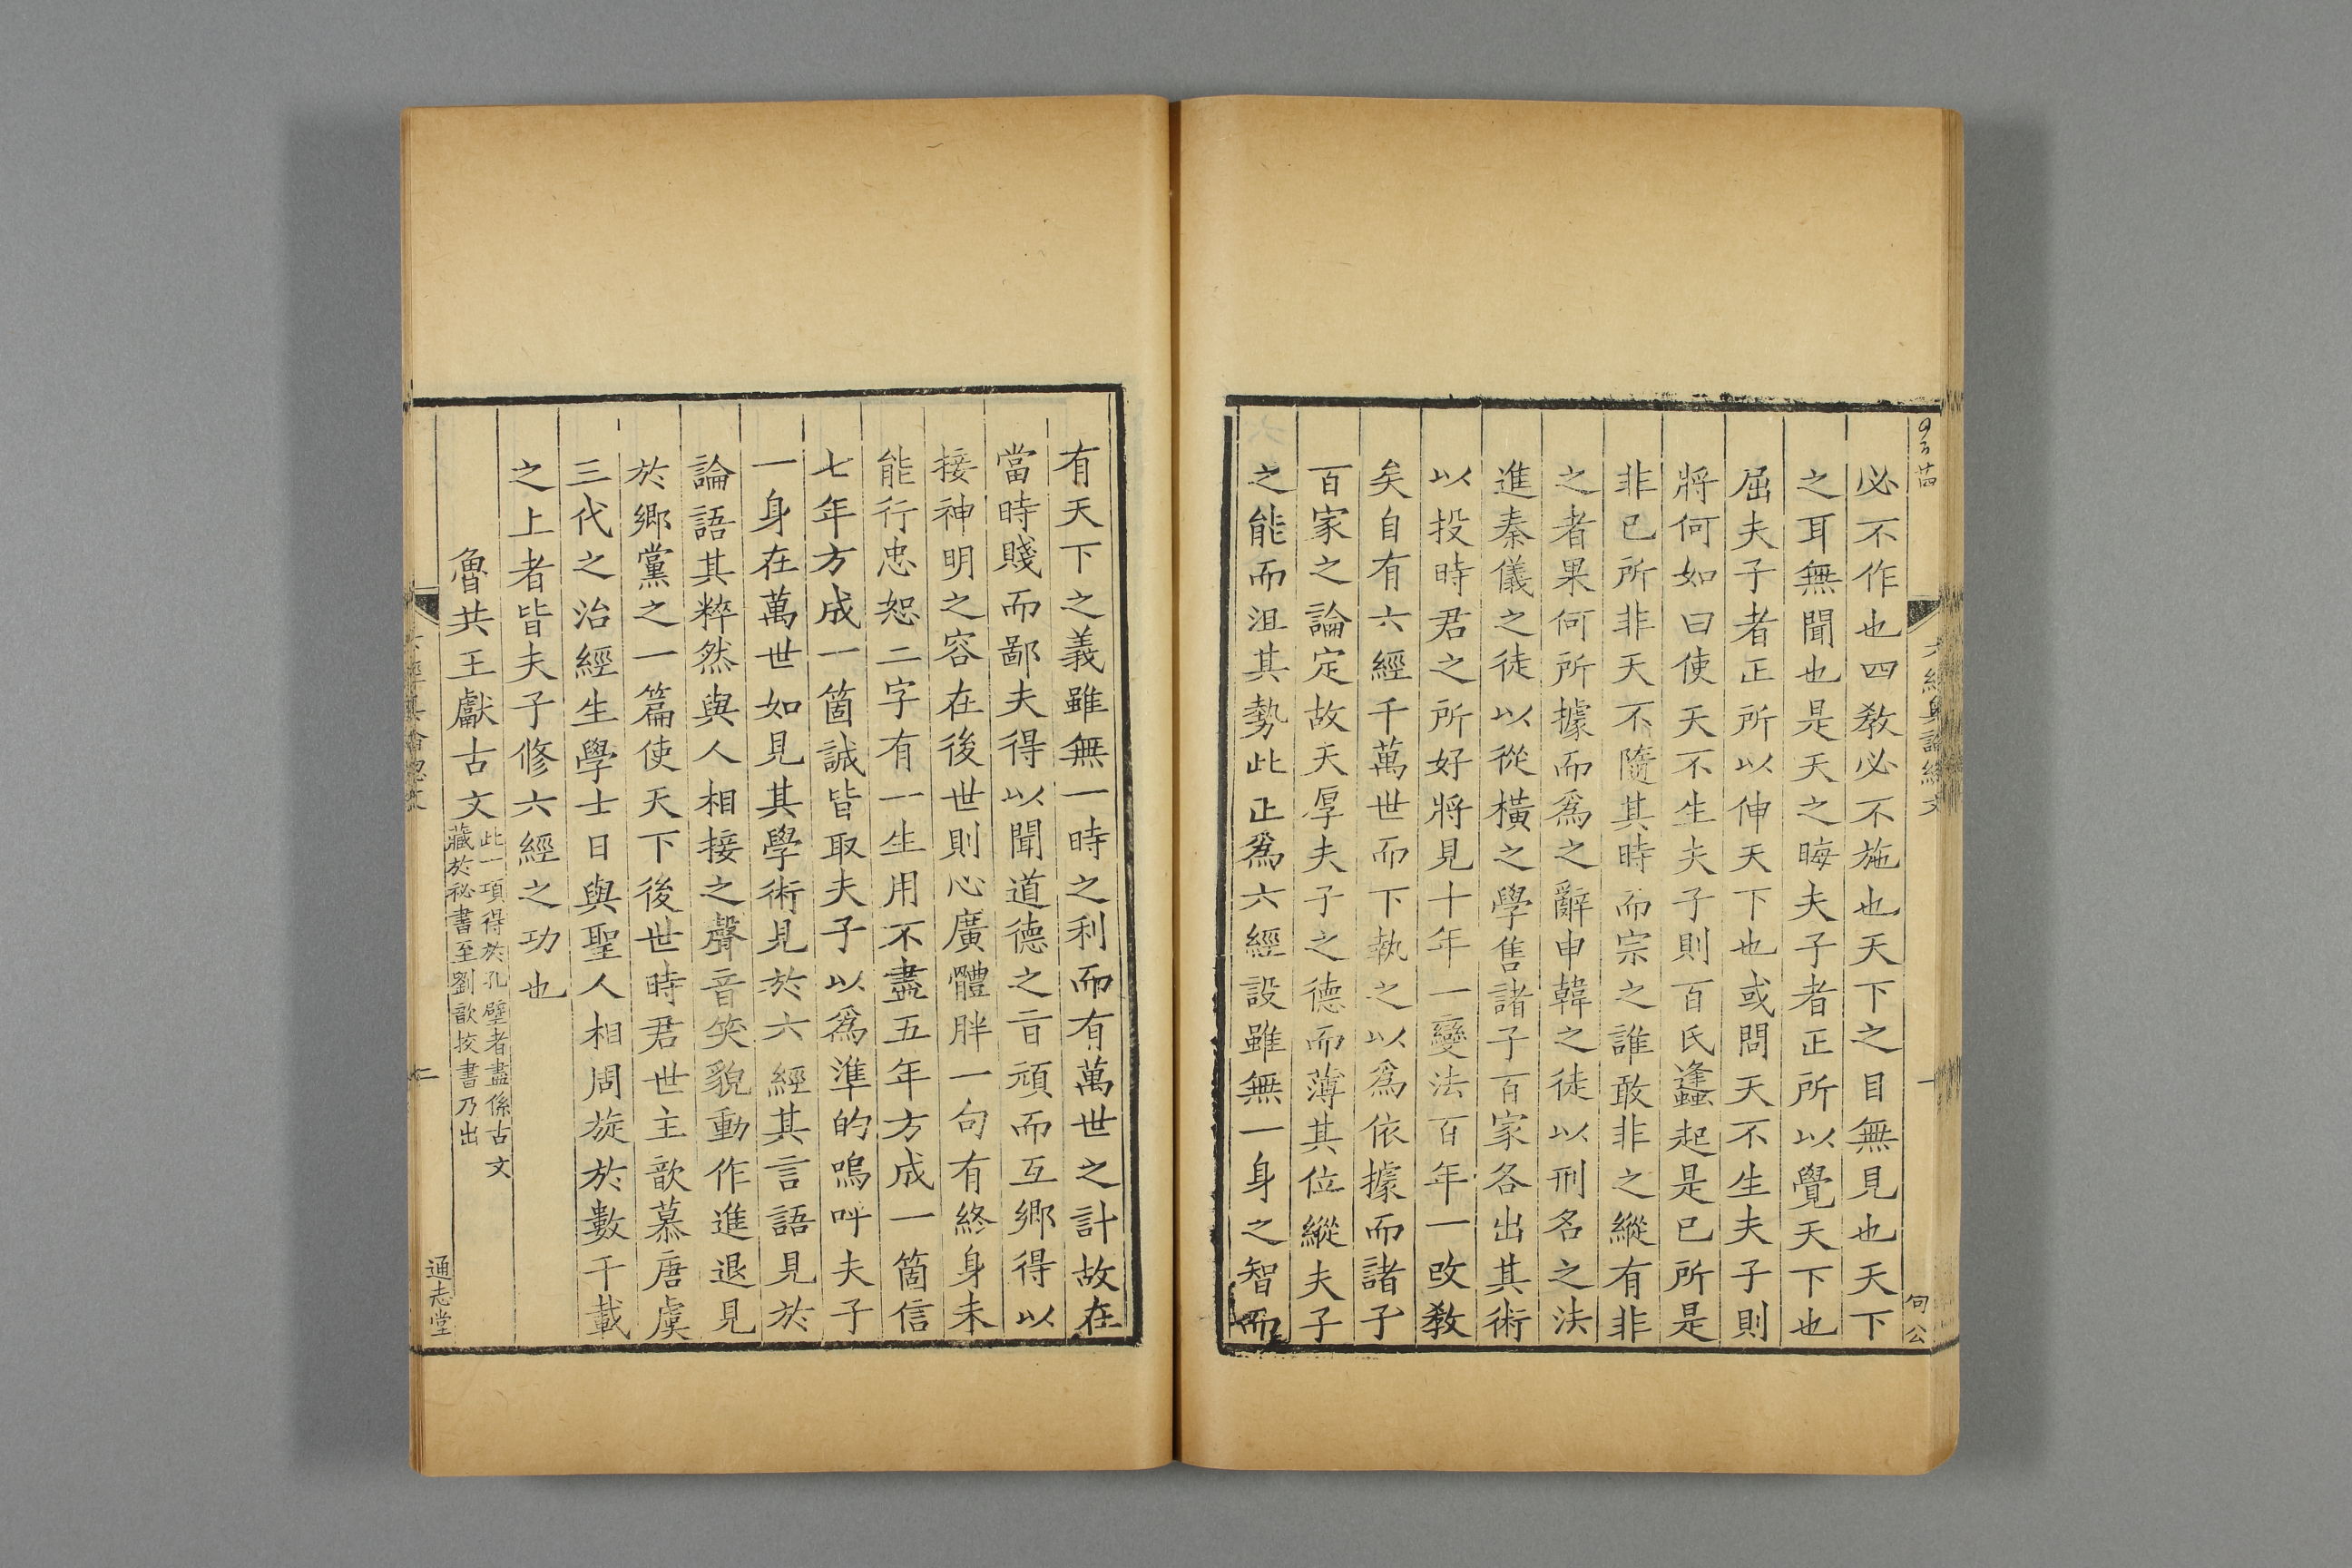 必不作也四敎必不施也天下之目無見也天下
之耳無聞也是天之晦夫子者正所以覺天下也
屈夫子者正所以伸天下也或問天不生夫子則
將何如曰使天不生夫子則百氏蠭起是已所是
非已所非天不隨其時而宗之誰敢非之縱有非
之者果何所據而爲之辭申韓之徒以刑名之法
進秦儀之徒以從橫之學售諸子百家各出其術
以投時君之所好將見十年一變法百年一改敎
矣自有六經千萬世而下執之以爲依據而諸子
百家之論定故天厚夫子之德而薄其位縱夫子
之能而沮其勢此正爲六經設雖無一身之智而
有天下之義雖無一時之利而有萬世之計故在
當時賤而鄙夫得以聞道德之㫖頑而互鄉得以
接神明之容在後世則心廣體胖一句有終身未
能行忠恕二字有一生用不盡五年方成一箇信
七年方成一箇誠皆取夫子以爲準的嗚呼夫子
一身在萬世如見其學術見於六經其言語見於
論語其粹然與人相接之聲音笑貌動作進退見
於鄉黨之一篇使天下後世時君世主歆慕唐虞
三代之治經生學士日與聖人相周旋於數千載
之上者皆夫子修六經之功也
魯共王獻古文
此一項得於孔壁者盡係古文
藏於祕書至劉歆挍書乃出
通志堂